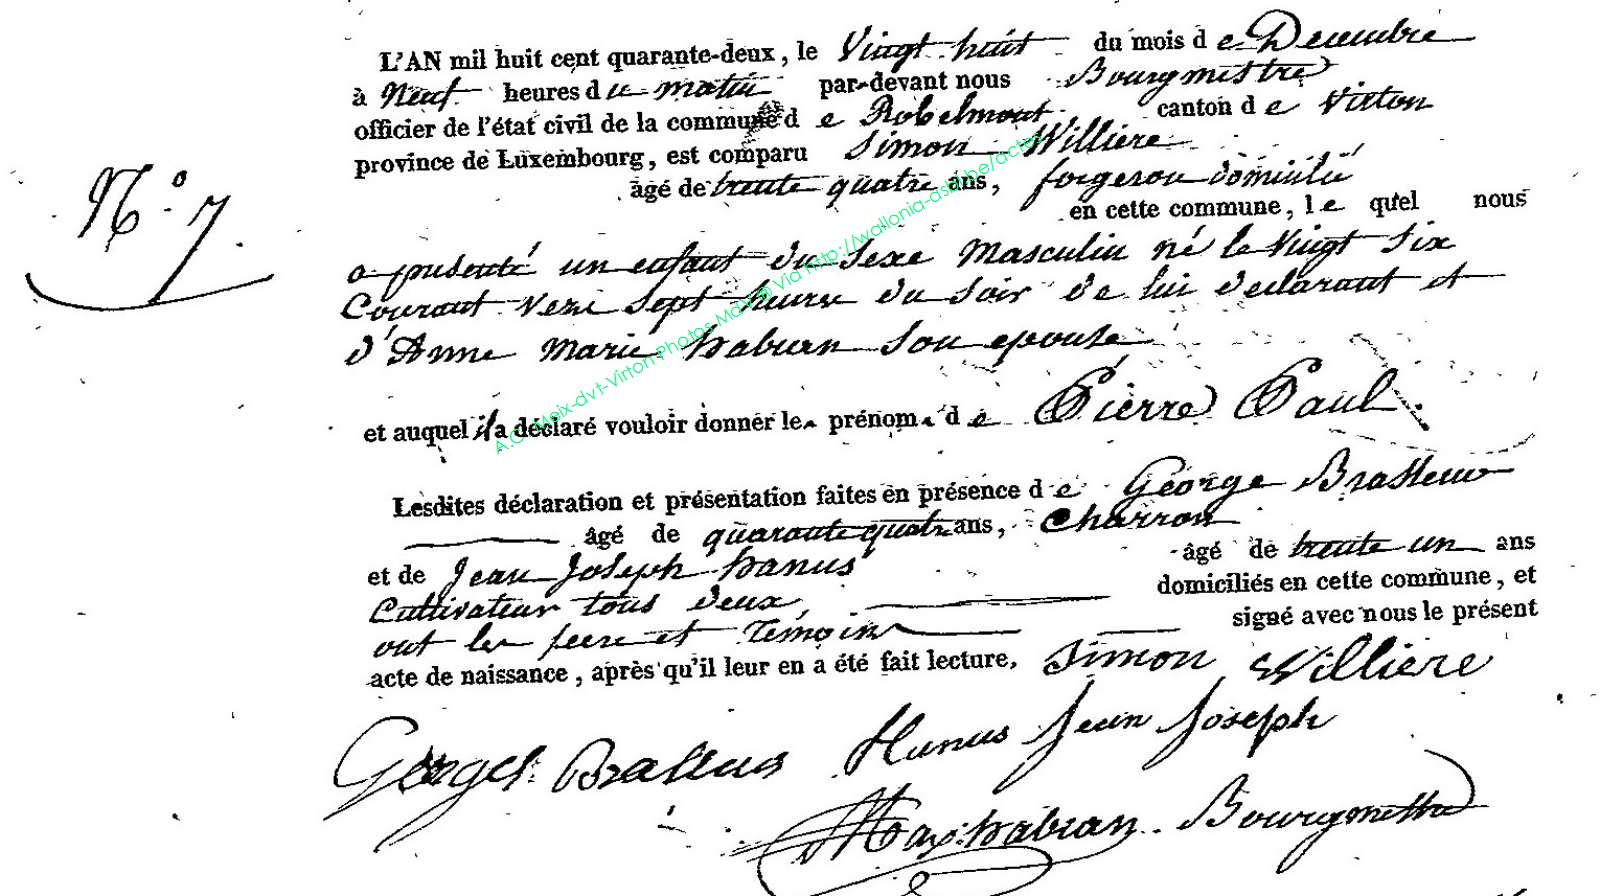 L'AN mil huit cent quarante-deux, le Vingt huit du mois de Decembre
à Neuf heures du matin par-devant nous Bourgmestre
officier de l'état civil de la commune de Robelmont canton de Virton
province de Luxembourg, est comparu Simon Williere
âgé de trente quatre ans, forgeron domicilié
en cette commune, lequel nous
N° 7.
a presenté un enfant du Sexe Masculin né le Vingt Six
Courant vers sept heures du soir de lui declarant et
d'Anne Marie habran Son epouse
et auquel il a déclaré vouloir donner les prénoms de Pierre Paul.
Lesdites déclaration et présentation faites en présence de George Brasseur
âgé de quarante quatre ans, Charron
et de Jean Joseph hanus âgé de trente un ans
Cultivateur tous deux, domiciliés en cette commune, et
ont les pere et Temoins signé avec nous le présent
acte de naissance, après qu'il leur en a été fait lecture. Simon Williere
Georges Brasseur Hanus Jean Joseph
habran Bourgmestre
A.C. Meix-dvt-Virton Photos MdV @ Via http://wallonia-asbl.be/actes